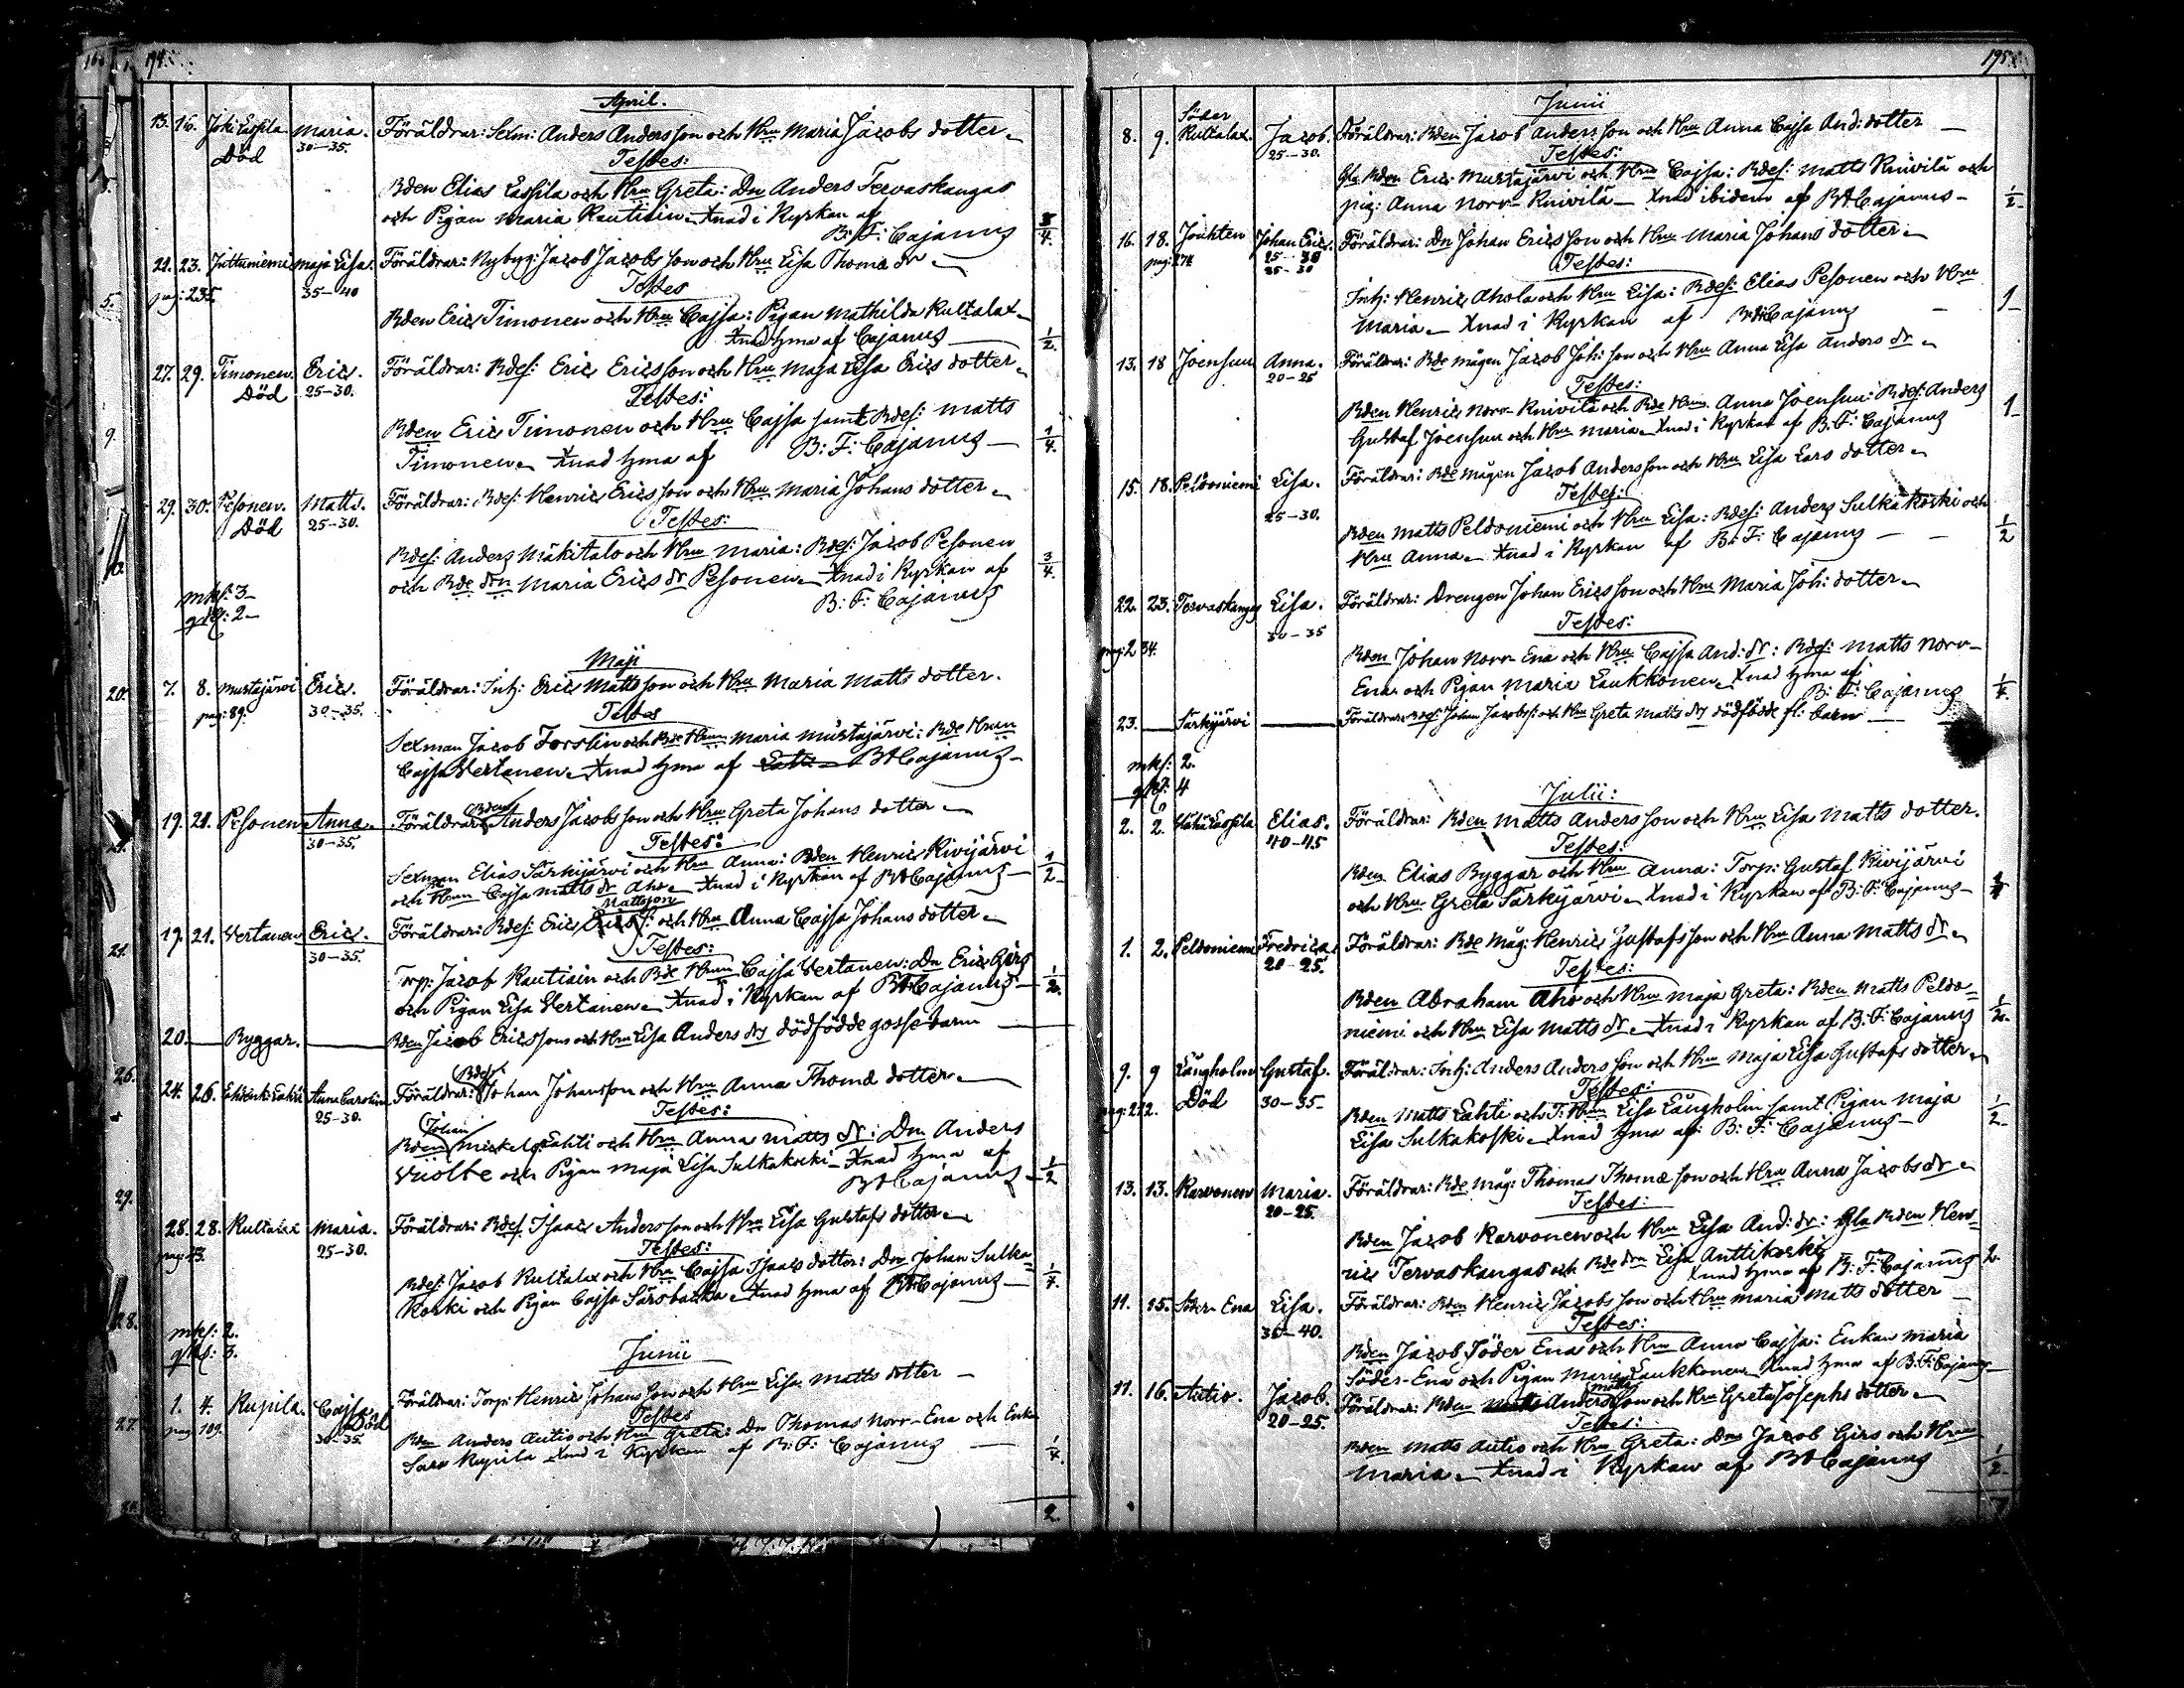 194.
April.
13. 16. Joki Laspila Maria. Föräldrar: Sexm: Anders Andersson och Hru Maria Jacobs dotter
Död 30-35. Testes:
Bden Elias Laspila och Hru Greta: Dn Anders Tervaskangas
och Pigan Maria Rautiain Xnad i Kyrkan af
B: F: Cajanus 3/4.
21. 23. Juttuniemi Maja Lisa. Föräldrar: Nybyg: Jacob Jacobsson och Hru Lisa Thomæ dr
pag: 235 35-40 Testes
Bden Eric Timonen och Hru Cajsa: Pigan Mathilda Kultalax
Xnad hma af Cajanus 1/2.
27. 29. Timonen. Eric. Föräldrar: Bdes: Eric Ericsson och Hru Maja Lisa Erics dotter
Död 25-30. Testes:
Bden Eric Timonen och Hru Cajsa samt Bdes: Matts
Timonen Xnad hma af B: F: Cajanus 1/4.
29. 30. Pesonen. Matts. Föräldrar: Bdes: Henric Ericsson och Hru Maria Johans dotter
Död 25-30. Testes:
Bdes: Anders Mäkitalo och Hru Maria: Bdes: Jacob Pesonen
och Bde drn Maria Erics dr Pesonen Xnad i Kyrkan af
B: F: Cajanus 3/4.
mk: 3
qk: 2
Maji
7. 8. Mustajärvi Eric. Föräldrar: Inh: Eric Mattsson och Hru Maria Matts dotter.
pag: 89. 30-35. Testes
Sexman Jacob Forslin och Bde Hrun Maria Mustajärvi: Bde Hrun
Cajsa Vertanen Xnad hma af B F Cajanus
19. 21. Pesonen Anna. Föräldrar: Bden Anders Jacobsson och Hru Greta Johans dotter
30-35. Testes:
Sexman Elias Särkijärvi och Hru Anna: Bden Henric Kivijärvi
och Hrun Cajsa Matts dr Aho Xnad i Kyrkan af B F Cajanus 1/2
Mattsson
19. 21. Vertanen Eric. Föräldrar: Bdes: Eric Erics s: och Hru Anna Cajsa Johans dotter
30-35. Testes:
Torp: Jacob Rautiain och Bde Hrun Cajsa Vertanen: Dn Eric Girs
och Pigan Lisa Vertanen Xnad i Kyrkan af B F Cajanus 1/2.
20. Byggar. Bden Jacob Ericssons och Hru Lisa Anders drs dödfödde gossebarn
Bdes:
24. 26. Anna Carolina Föräldrar: Johan Johansson och Hru Anna Thomæ dotter
25-30. Testes:
Johan
Bden Mickel Lahti och Hru Anna Matts dr: Dn Anders
Vuolte och Pigan Maja Lisa Sulkakoski Xnad hma af
B F Cajanus 1/2
28. 28. Kultalax Maria. Föräldrar: Bdes. Isaac Andersson och Hru Lisa Gustafs dotter
25-30. Testes:
Bdes: Jacob Kultalax och Hru Cajsa Isaacs dotter: Dn Johan Sulka
koski och Pigan Cajsa Sarsbacka Xnad hma af B F Cajanus
mk: 2.
qk: 3.
Junii
1. 4. Rupila. Cajsa. Föräldrar: Torp: Henric Johansson och Hru Lisa Matts dotter
pag: 109. Död 30-35. Testes
Bden Anders Autio och Hru Greta: Dn Thomas Norr-Ena och Enka
Sara Rupila Xnad i Kyrkan af B: F: Cajanus
2.
195.
Junii
8. 9. Söder Kultalax. Jacob. Föräldrar: Bden Jacob Andersson och Hru Anna Cajsa And: dotter
25-30. Testes:
Gla Bden Eric Mustajärvi och Hru Cajsa: Bdes: Matts Knivilä och
pig: Anna Norr-Knivilä Xnad ibidem af B F Cajanus 1/2
16. 18. Joukten Johan Eric. Föräldrar: Dn Johan Ericsson och Hru Maria Johans dotter
pag: 274 25-30 Testes:
25-30
Inh: Henric Ahola och Hru Lisa: Bdes: Elias Pesonen och Hru
Maria Xnad i Kyrkan af B F Cajanus 1
13. 18 Joensuu Anna. Föräldrar: Bde mågen Jacob Joh: son och Hru Anna Lisa Anders dr
20-25 Testes:
Bden Henric Norr-Knivilä och Bde Hrun Anna Joensuu: Bdes: Anders
Gustaf Joensuu och Hru Maria Xnad i Kyrkan af B. F. Cajanus 1
15. 18. Peldoniemi Lisa. Föräldrar: Bde Mågen Jacob Andersson och Hru Lisa Lars dotter
25-30. Testes:
Bden Matts Peldoniemi och Hru Lisa: Bdes: Anders Sulkakoski och
Hru Anna Xnad i Kyrkan af B: F: Cajanus 1/2
22. 23. Tervaskangas Lisa. Föräldrar: Drengen Johan Ericsson och Hru Maria Joh: dotter
30-35 Testes:
pag: 234. Bden Johan Norr-Ena och Hru Cajsa And: dr: Bdes: Matts Norr-
Ena och Pigan Maria Laukkonen Xnad hma af
B: F: Cajanus
23. Särkijärvi Föräldrar: Bdes: Johan Jacobss: och Hru Greta Matts drs dödfödde fl: barn
mk: 2.
qk: 4
Julii:
2. 2. Vähä Laspila Elias. Föräldrar: Bden Matts Andersson och Hru Lisa Matts dotter.
40-45 Testes:
Bden Elias Byggar och Hru Anna: Torp: Gustaf Kivijärvi
och Hru Greta Särkijärvi Xnad i Kyrkan af B: F: Cajanus
1. 2. Peldoniemi Fredrica Föräldrar: Bde Måg: Henric Gustafsson och Hru Anna Matts dr
20-25. Testes:
Bden Abraham Aho och Hru Maja Greta: Bden Matts Peldo-
niemi och Hru Lisa Matts dr Xnad i Kyrkan af B: F: Cajanus 1/2.
9. 9 Långholm Gustaf. Föräldrar: Inh: Anders Andersson och Hru Maja Lisa Gustafs dotter
pag: 272. Död 30-35 Testes:
Bden Matts Lahti och T: Hrun Lisa Långholm samt Pigan Maja
Lisa Sulkakoski Xnad hma af B: F: Cajanus 1/2
13. 13. Karvonen Maria. Föräldrar: Bde Måg: Thomas Thomæ son och Hru Anna Jacobs dr
20-25. Testes:
Bden Jacob Karvonen och Hru Lisa And: dr: Gla Bden Hen-
ric Tervaskangas och Bde drn Lisa Anttikoski
Xnad hma af B: F: Cajanus 2
11. 15. Söder Ena Lisa. Föräldrar: Bden Henric Jacobsson och Hru Maria Matts dotter
35-40. Testes:
Bden Jacob Söder Ena och Hru Anna Cajsa: Enkan Maria
Söder-Ena och Pigan Maria Laukkonen Xnad hma af B: F: Cajanus
11. 16. Autio. Jacob. Föräldrar: Bden Matts Andersson och Hru Greta Josephs dotter
20-25. Testes:
Bden Matts Autio och Hru Greta: Dn Jacob Girs och Hru
Maria Xnad i Kyrkan af B F Cajanus 1/2
7